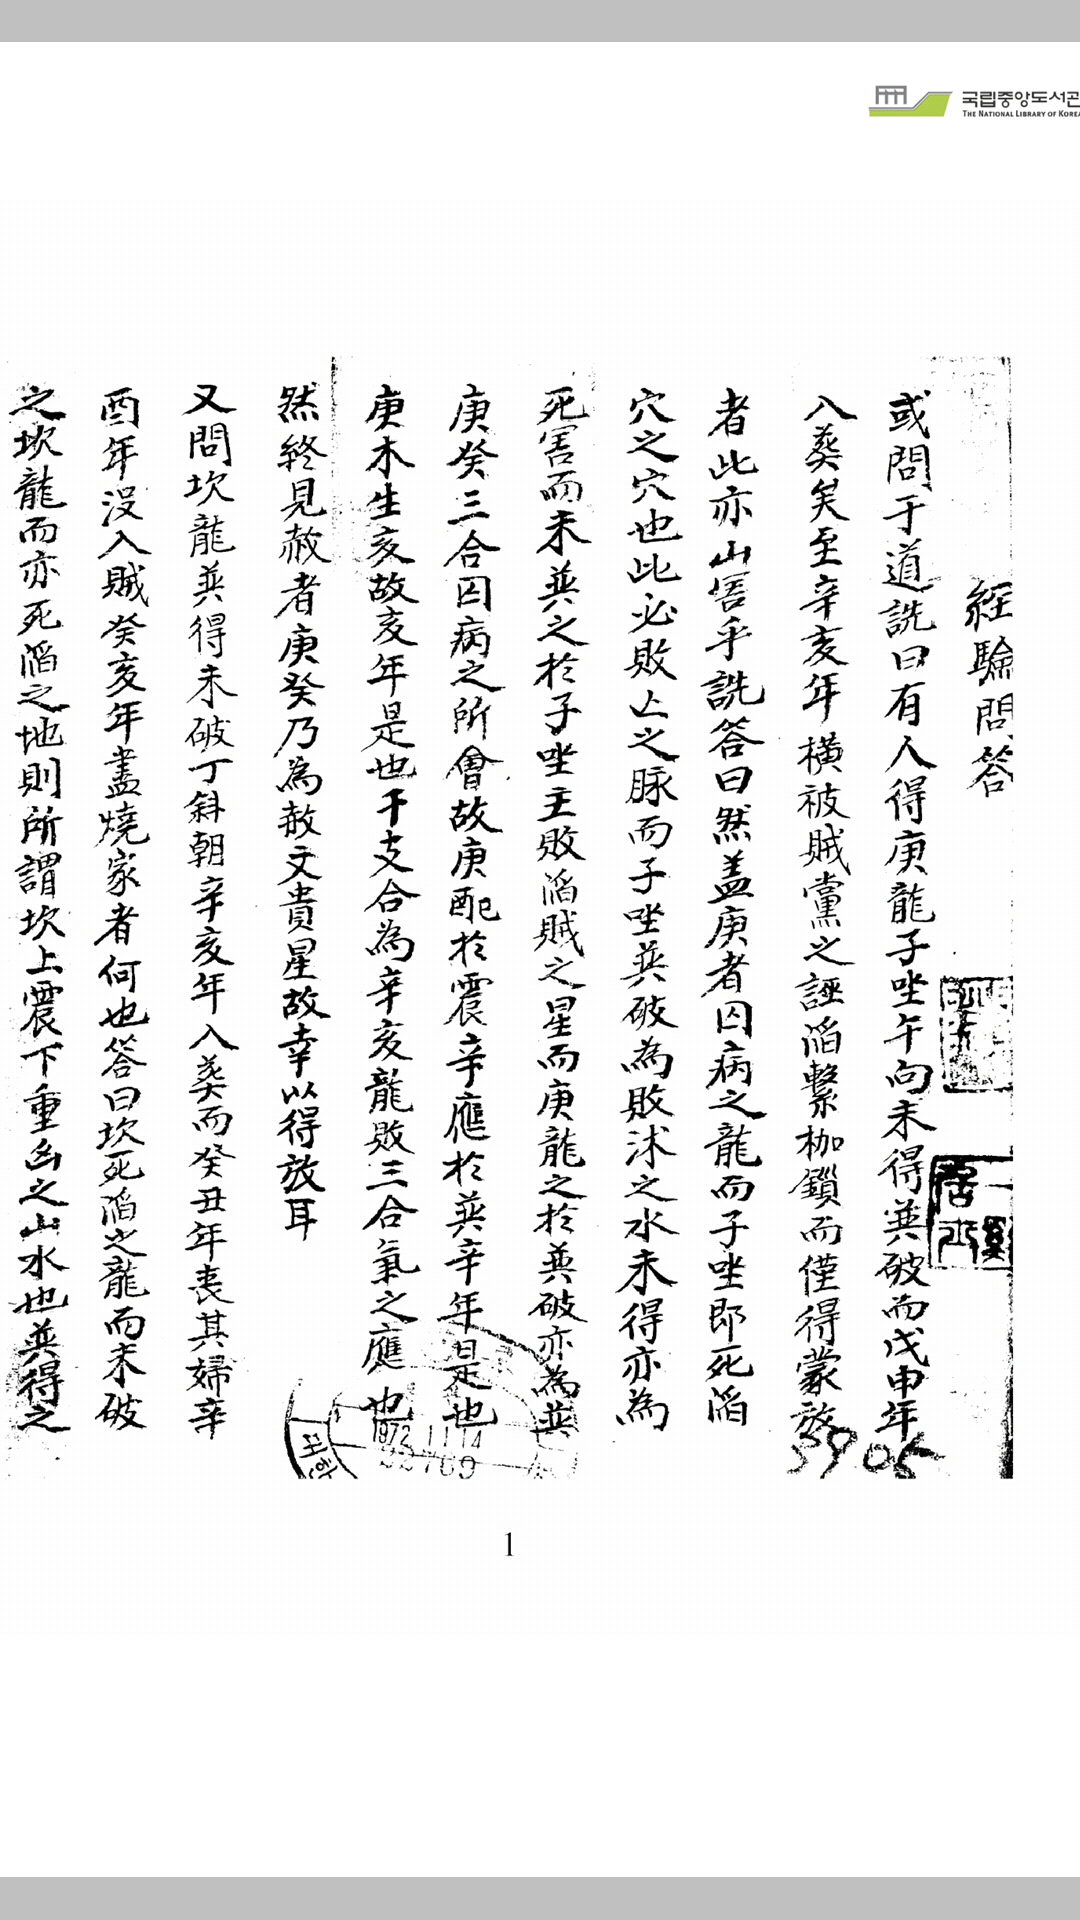 국립중앙도서관
THE NATIONAL LIBRARY OF KOREA
經驗問答
或問于道詵曰有人得庚龍子坐午向未得巽破而戊申年
入葬矣至辛亥年橫被賊黨之誣滔繫枷鎖而僅得蒙放
者此亦山害乎詵答曰然盖庚者囚病之龍而子坐即死滔
穴之穴也此必敗亡之脉而子坐巽破為敗沭之水未得亦為
死害而未巽之於子坐主敗滔賊之星而庚龍之於巽破亦為巽
庚癸三合囚病之所會故庚配於震辛應於巽辛年是也
庚木生亥故亥年是也干支合為辛亥龍敗三合氣之應也
然終見赦者庚癸乃為赦文貴星故幸以得放耳
又問坎龍巽得未破丁斜朝辛亥年入葬而癸丑年丧其婦辛
酉年没入賊癸亥年盡燒家者何也答曰坎死滔之龍而未破
之坎龍而亦死滔之地則所謂坎上震下重凶之山水也巽得之
5905
1972 11 14
22709
1